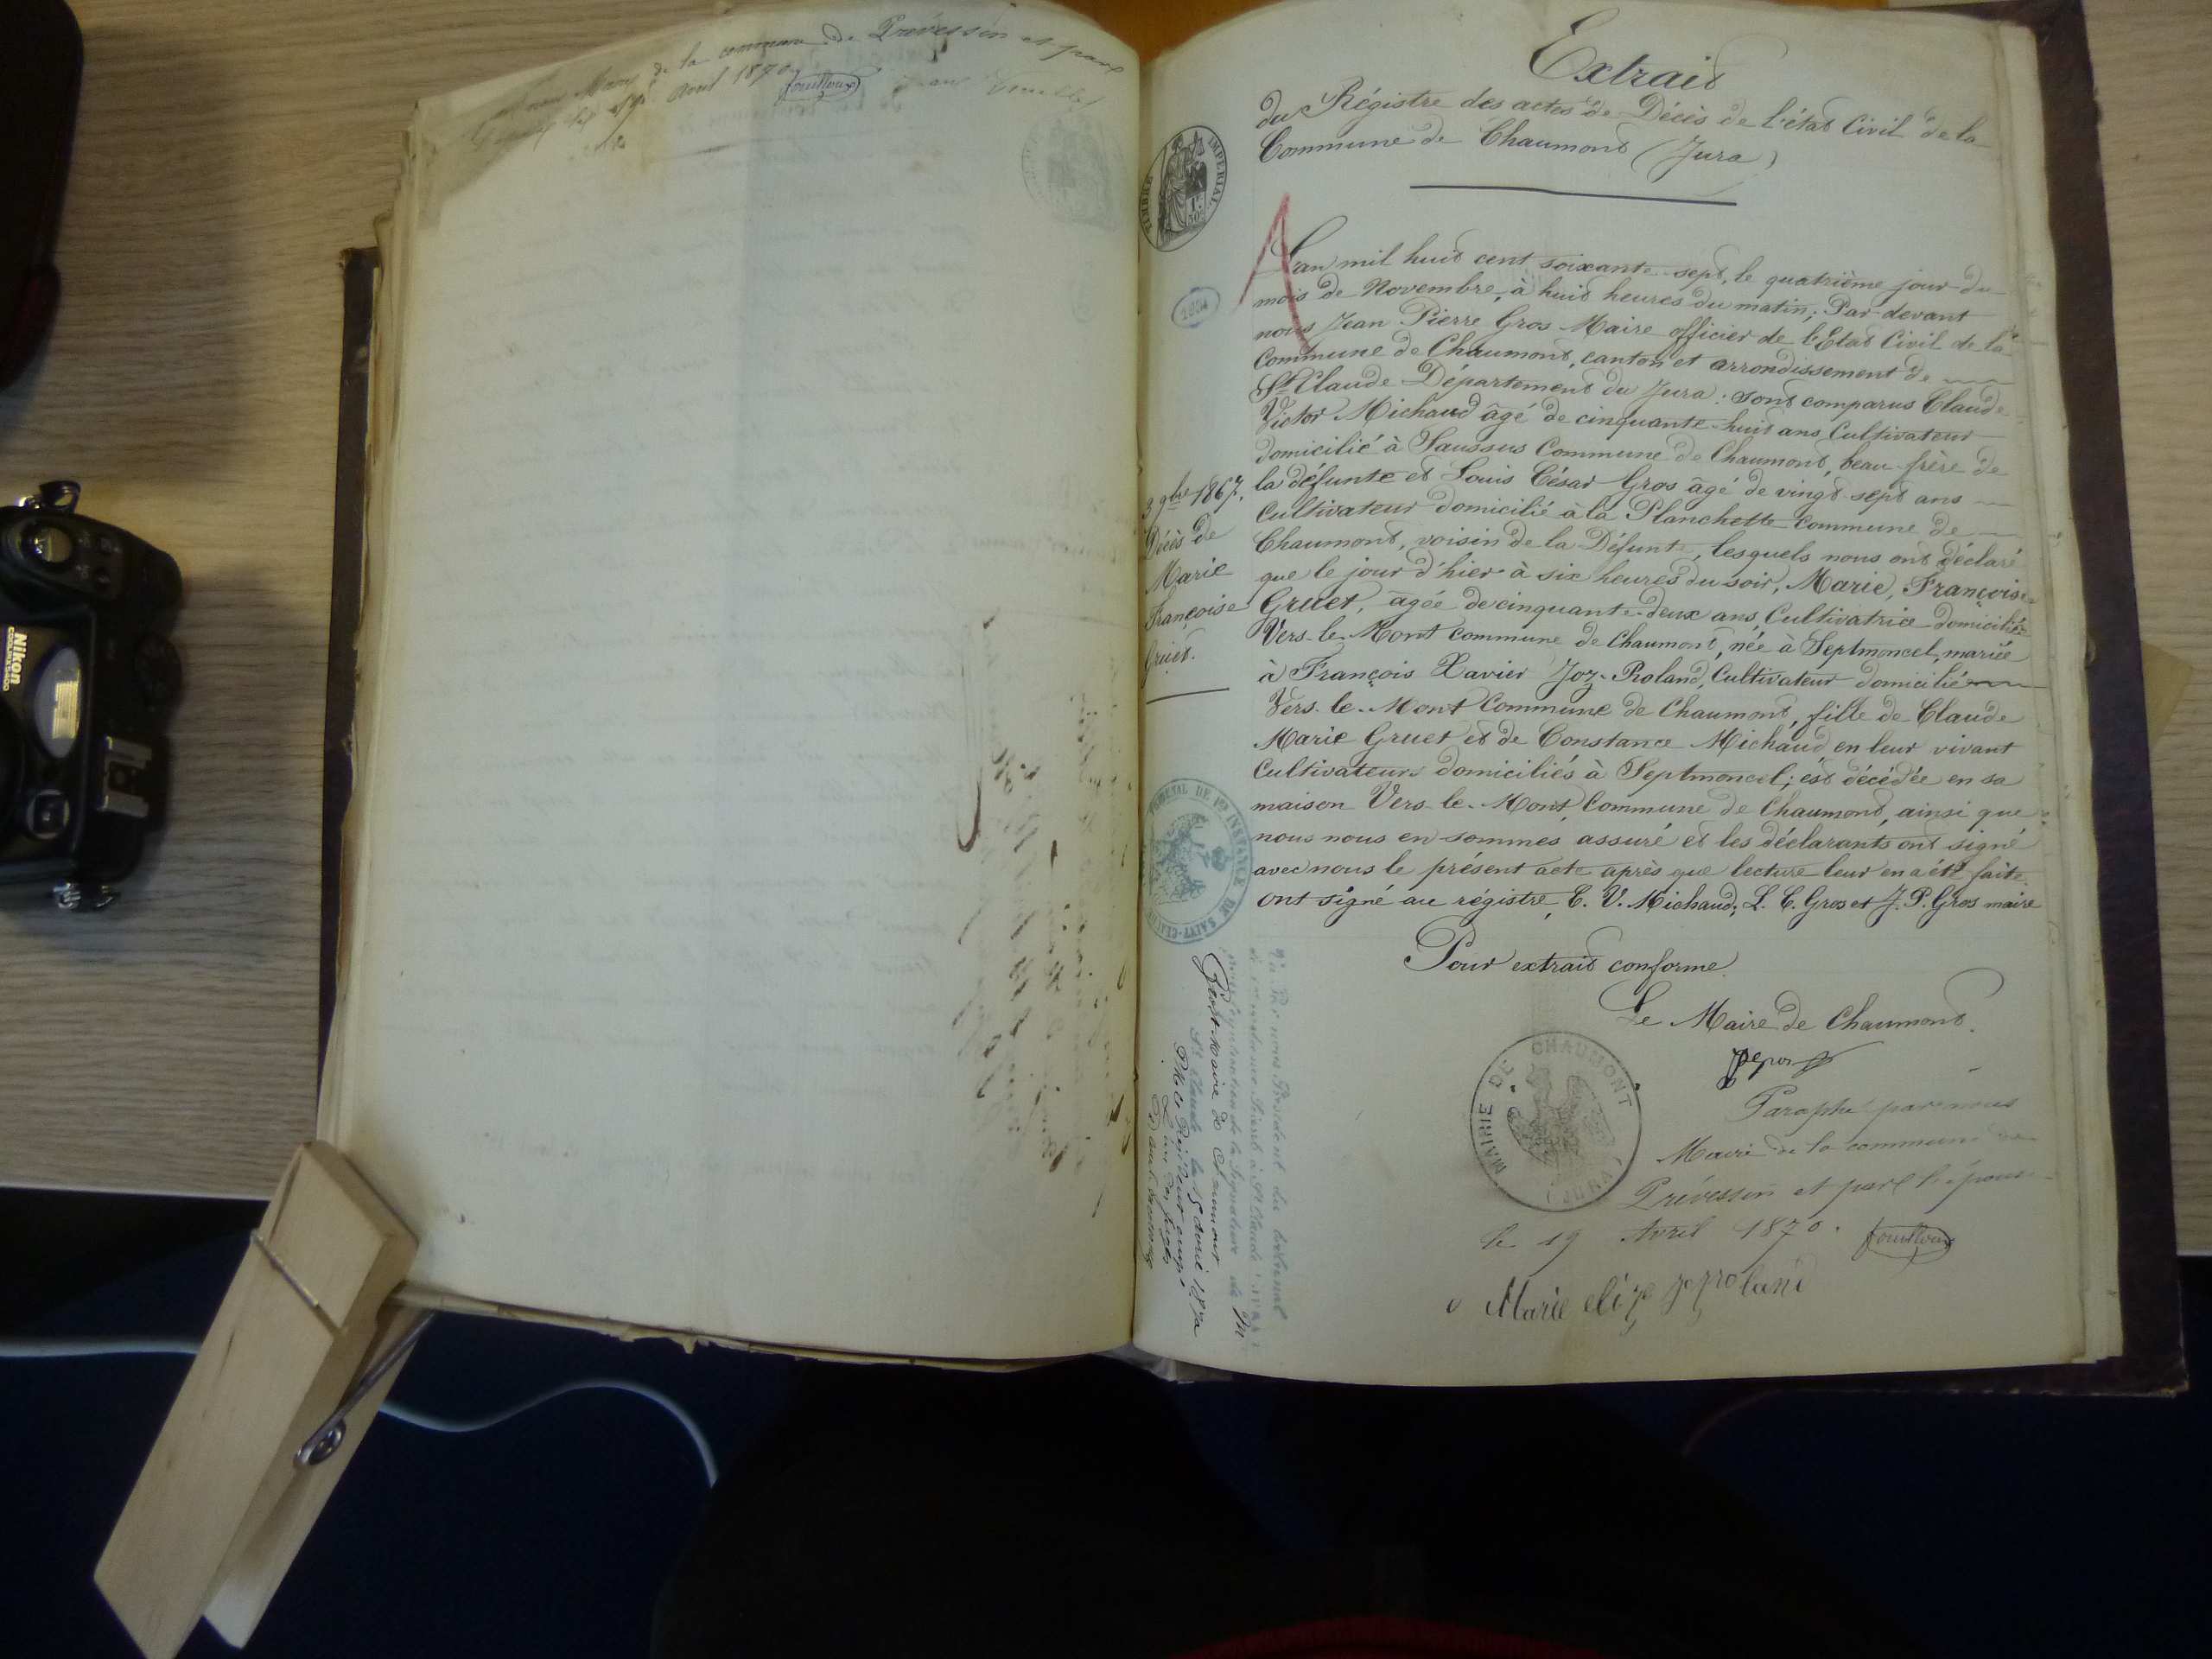 de la commune de Prévessin et par
avril 1870.
fouilloux
Extrait
du Régistre des actes de Décès de l'état Civil de la
Commune de Chaumont (Jura)
TIMBRE IMPERIAL
1F
50C
L'an mil huit cent soixante-sept, le quatrième jour du
mois de Novembre, à huit heures du matin; Par devant
nous Jean Pierre Gros Maire officier de l'Etat Civil de la
Commune de Chaumont, canton et arrondissement de
St Claude Département du Jura: sont comparus Claude
Victor Michaud âgé de cinquante-huit ans Cultivateur
domicilié à Saussus Commune de Chaumont, beau-frère de
la défunte et Louis César Gros âgé de vingt sept ans
Cultivateur domicilié à la Planchette Commune de
Chaumont, voisin de la Défunte, lesquels nous ont déclaré
que le jour d'hier à six heures du soir, Marie, Françoise
Gruet, âgée de cinquante-deux ans, Cultivatrice domiciliée
Vers-le-Mont commune de Chaumont, née à Septmoncel, mariée
à François Xavier Joz-Roland, Cultivateur domicilié
Vers-le-Mont Commune de Chaumont, fille de Claude
Marie Gruet et de Constance Michaud en leur vivant
Cultivateurs domiciliés à Septmoncel; ést décédée en sa
maison Vers-le-Mont, Commune de Chaumont, ainsi que
nous nous en sommes assuré et les déclarants ont signé
avec nous le présent acte après que lecture leur en a été faite.
ont signé au régistre, C. V. Michaud; L. C. Gros et J. P. Gros maire
3 9bre 1867.
Décès de
Marie
Françoise
Gruet.
TRIBUNAL DE 1ère INSTANCE DE SAINT-CLAUDE
Pour extrait conforme.
Le Maire de Chaumont.
MAIRIE DE CHAUMONT
(JURA)
Paraphé par nous
Maire de la commune de
Prévessin et par l'épouse
le 19 Avril 1870.
fouilloux
Marie elize joz roland
Vu Par nous Président du tribunal
de 1ère instance Séant à St Claude
pour légalisation de la Signature de Mr
maire de Chaumont
St Claude le 15 avril 1870
Pr le Président empé
L'un des juges
Nikon